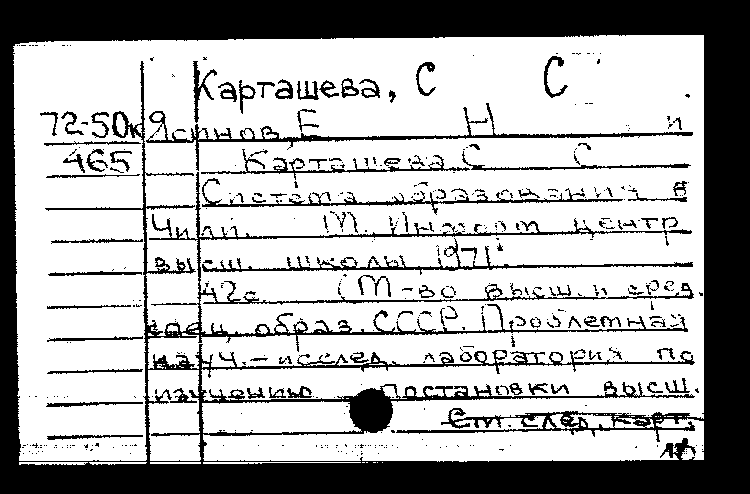 Карташева, С С
72-50к Ясинов, Е Н и
465 Карташева С С
Система образования в
Чили. М., Информ центр
высш. школы, 1971.
42с (М-во высш. и сред.
спец. образ. СССР. Проблемная
науч.-исслед. лаборатория по
изучению постановки высш.
См. след. карт.